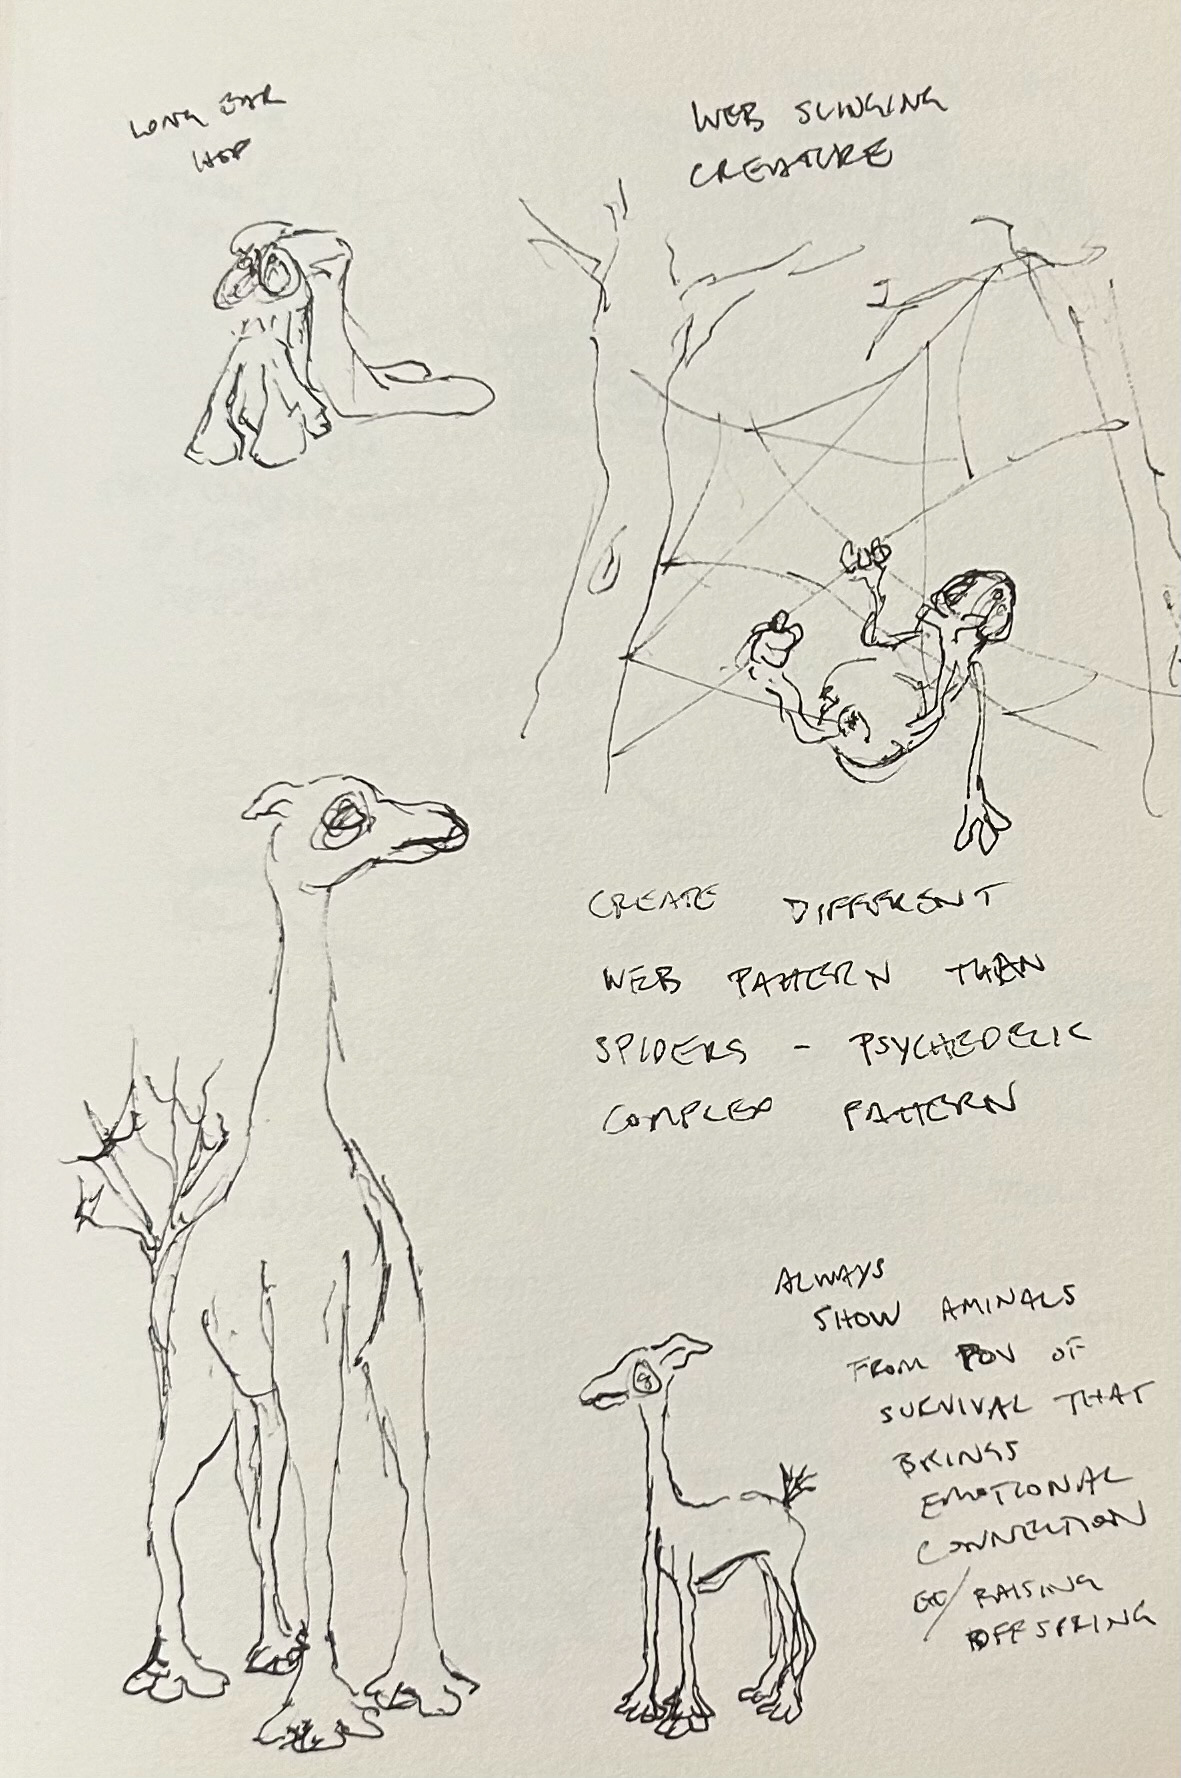 LONG EAR
HOP
WEB SLINGING
CREATURE
CREATE DIFFERENT
WEB PATTERN THAN
SPIDERS - PSYCHEDELIC
COMPLEX PATTERN
ALWAYS
SHOW AMINALS
FROM POV OF
SURVIVAL THAT
BRINGS
EMOTIONAL
CONNECTION
RAISING
OFFSPRING